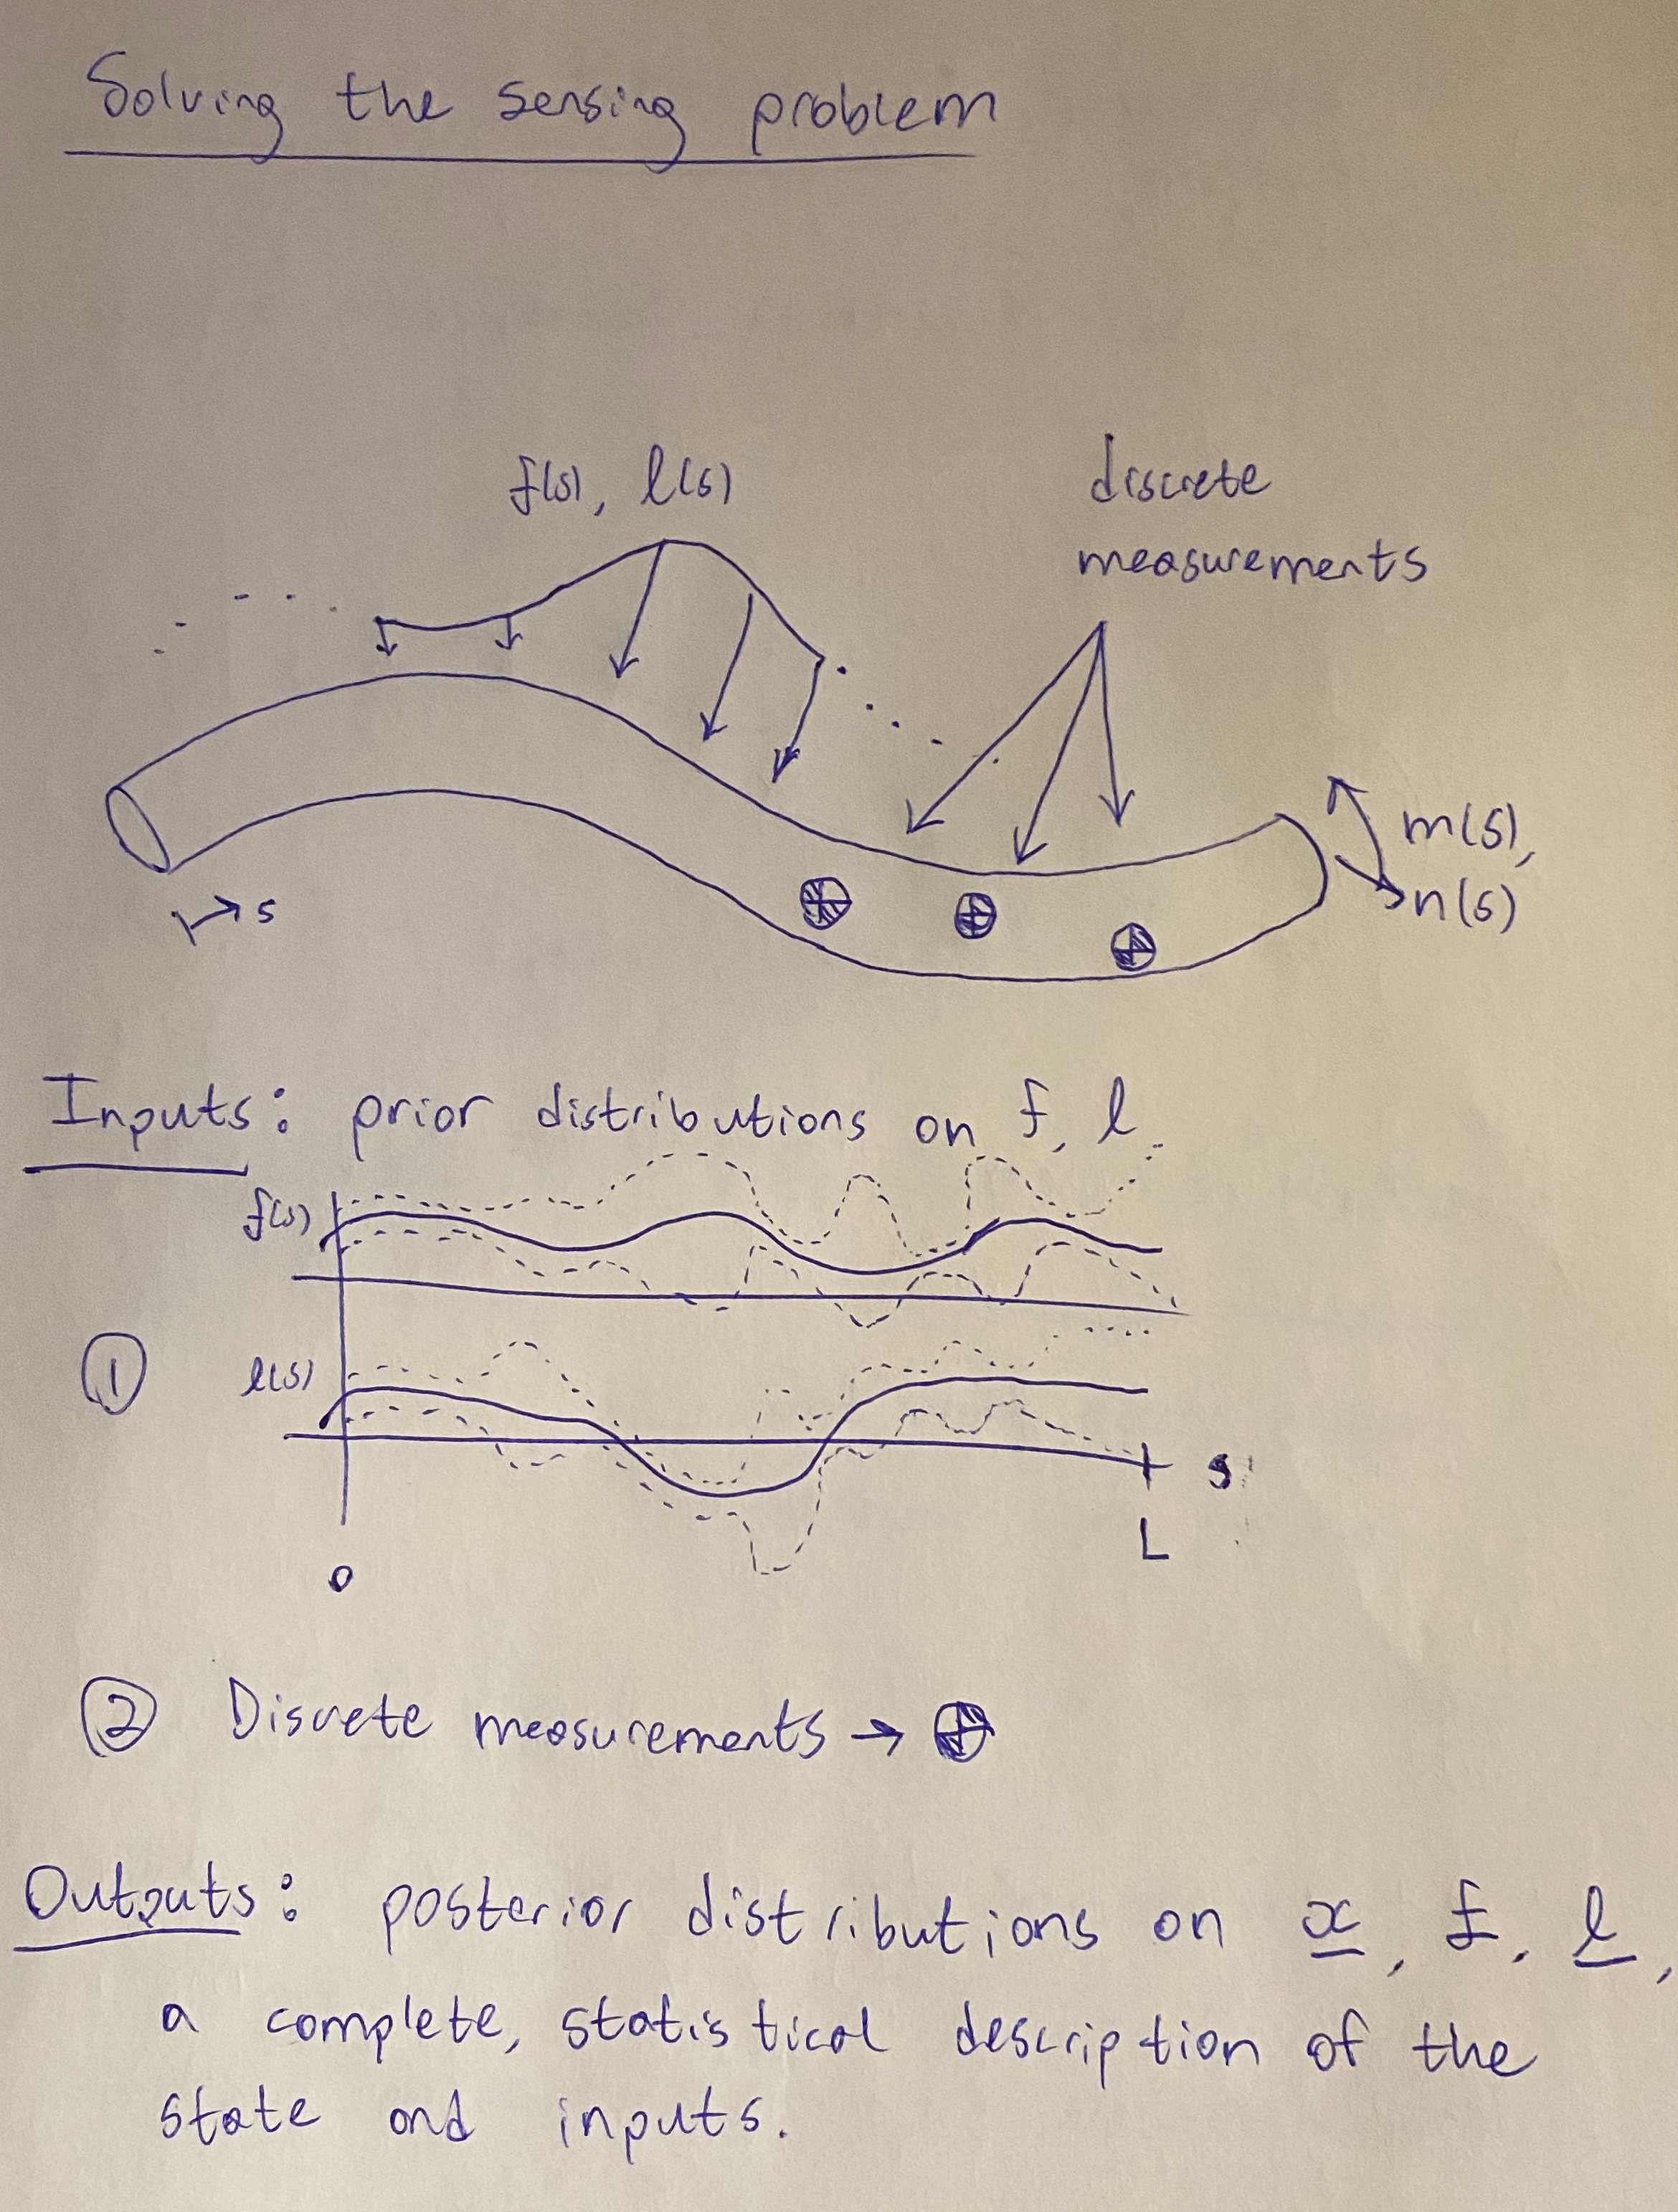 Solving the sensing problem
f(s), l(s)
discrete
measurements
m(s),
n(s)
s
Inputs: prior distributions on f, l.
f(s)
① l(s)
s
L
0
② Discrete measurements →
Outputs: posterior distributions on x, f, l,
a complete, statistical description of the
state and inputs.